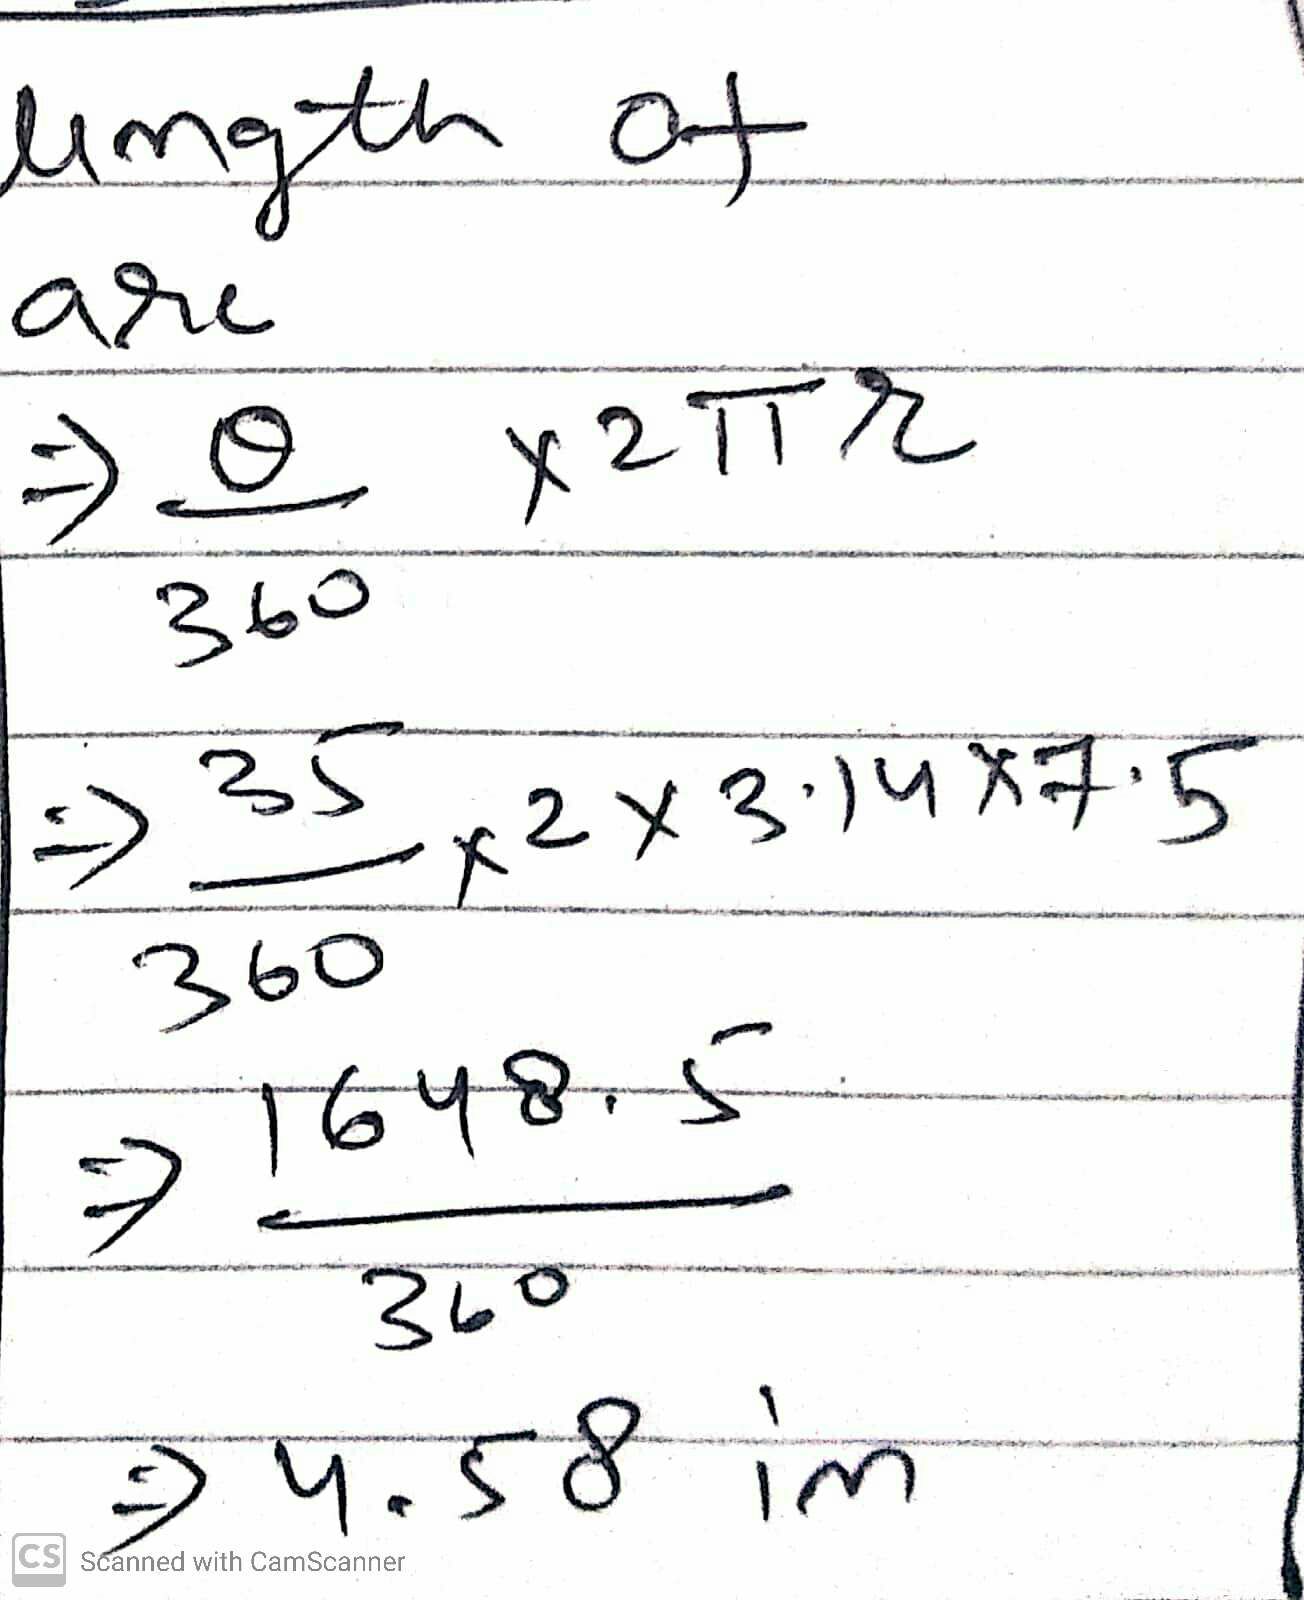 length of
arc
⇒ θ × 2πr
360
⇒ 35 × 2 × 3.14 × 7.5
360
⇒ 1648.5
360
⇒ 4.58 in
CS Scanned with CamScanner